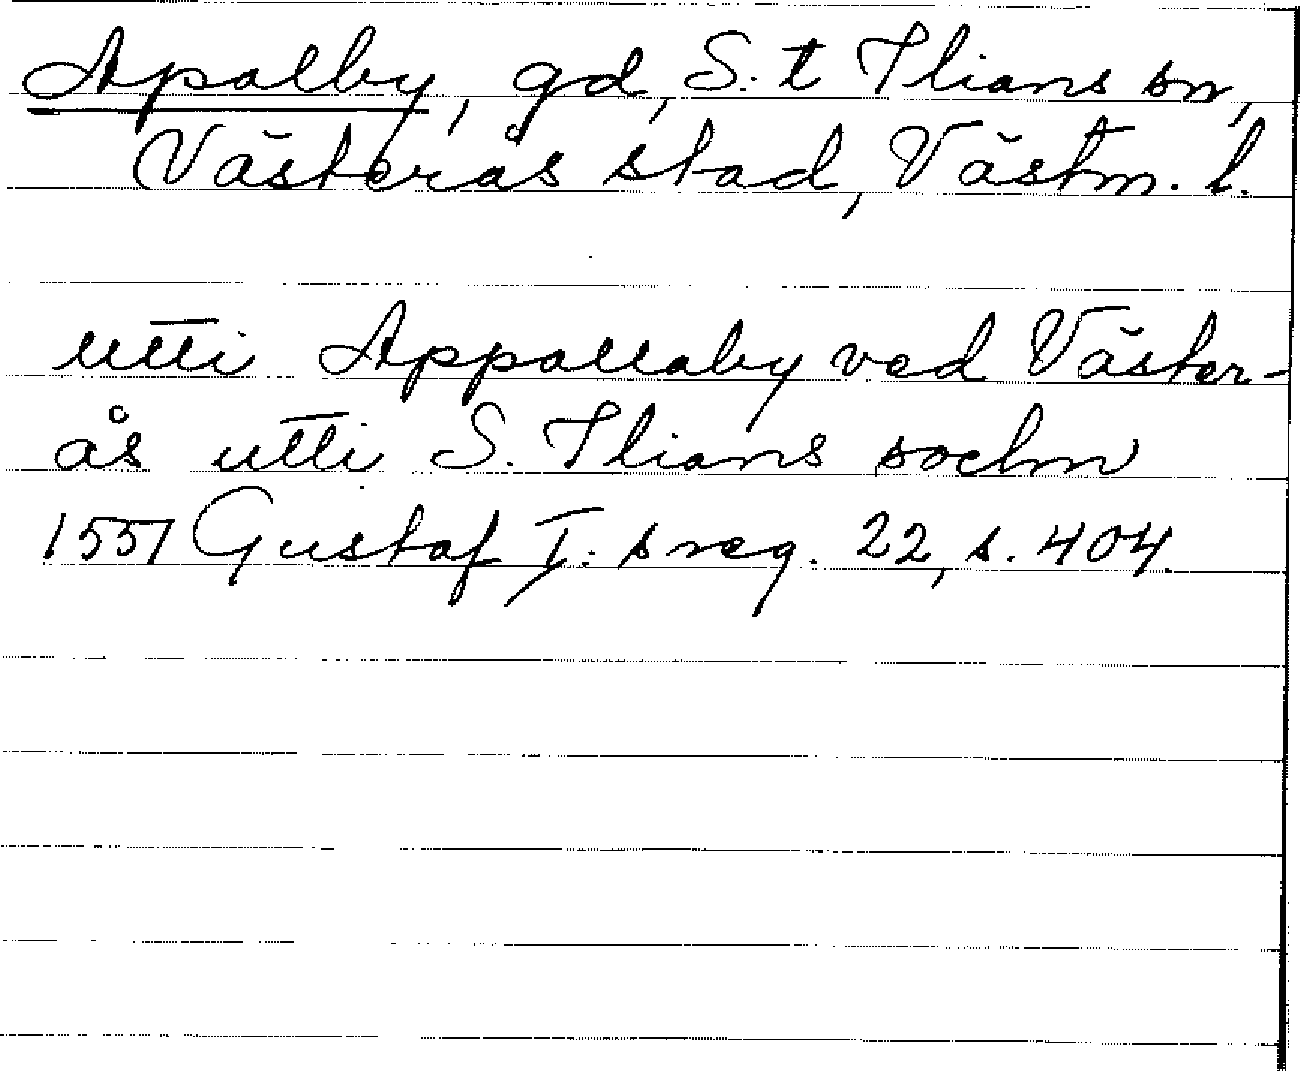 Apalby, gd, S:t Ilians sn,
Västerås stad, Västm. l.
utti Appallaby ved Väster-
ås utti S. Ilians sochn
1551 Gustaf I:s reg. 22, s. 404.